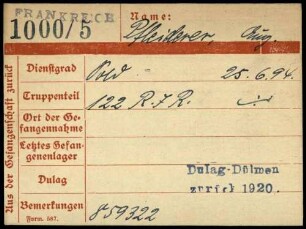 FRANKREICH
1000/5
Name:
Pfleiderer, Aug.
Dienstgrad Sold. 25.6.94.
Truppenteil 122 R.I.R.
Ort der Ge-
fangennahme
Letztes Gefan-
genenlager
Dulag
Dulag-Dülmen
zurück 1920.
Bemerkungen 859322
Form. 587.
Aus der Gefangenschaft zurück